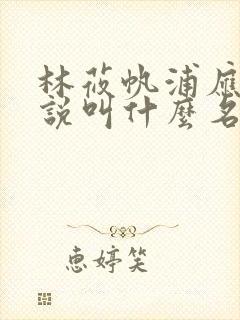 林莜帆浦應
説叫什麼名
惠婷笑